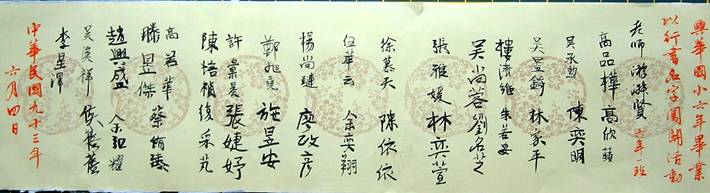 興華國小六年畢業
以行書名字闖關活動
六年一班
老師 游淑賢
高品樺 高欣蘋
吳承勳 陳奕明
吳昱錡 林家平
樓濟維 朱若安
吳尚蓉 劉名芝
張雅媛 林奕萱
徐慕天 陳依依
伍華云 余奕翔
楊尚璉 廖政彥
鄭旭 施昱安
許景晨 張婕妤
陳恬楨 後采芃
高若華
滕昱傑 蔡脩臻
趙興盛 余 耀
吳 祥 侯
李星澤
中華民國九十三年
六月四日